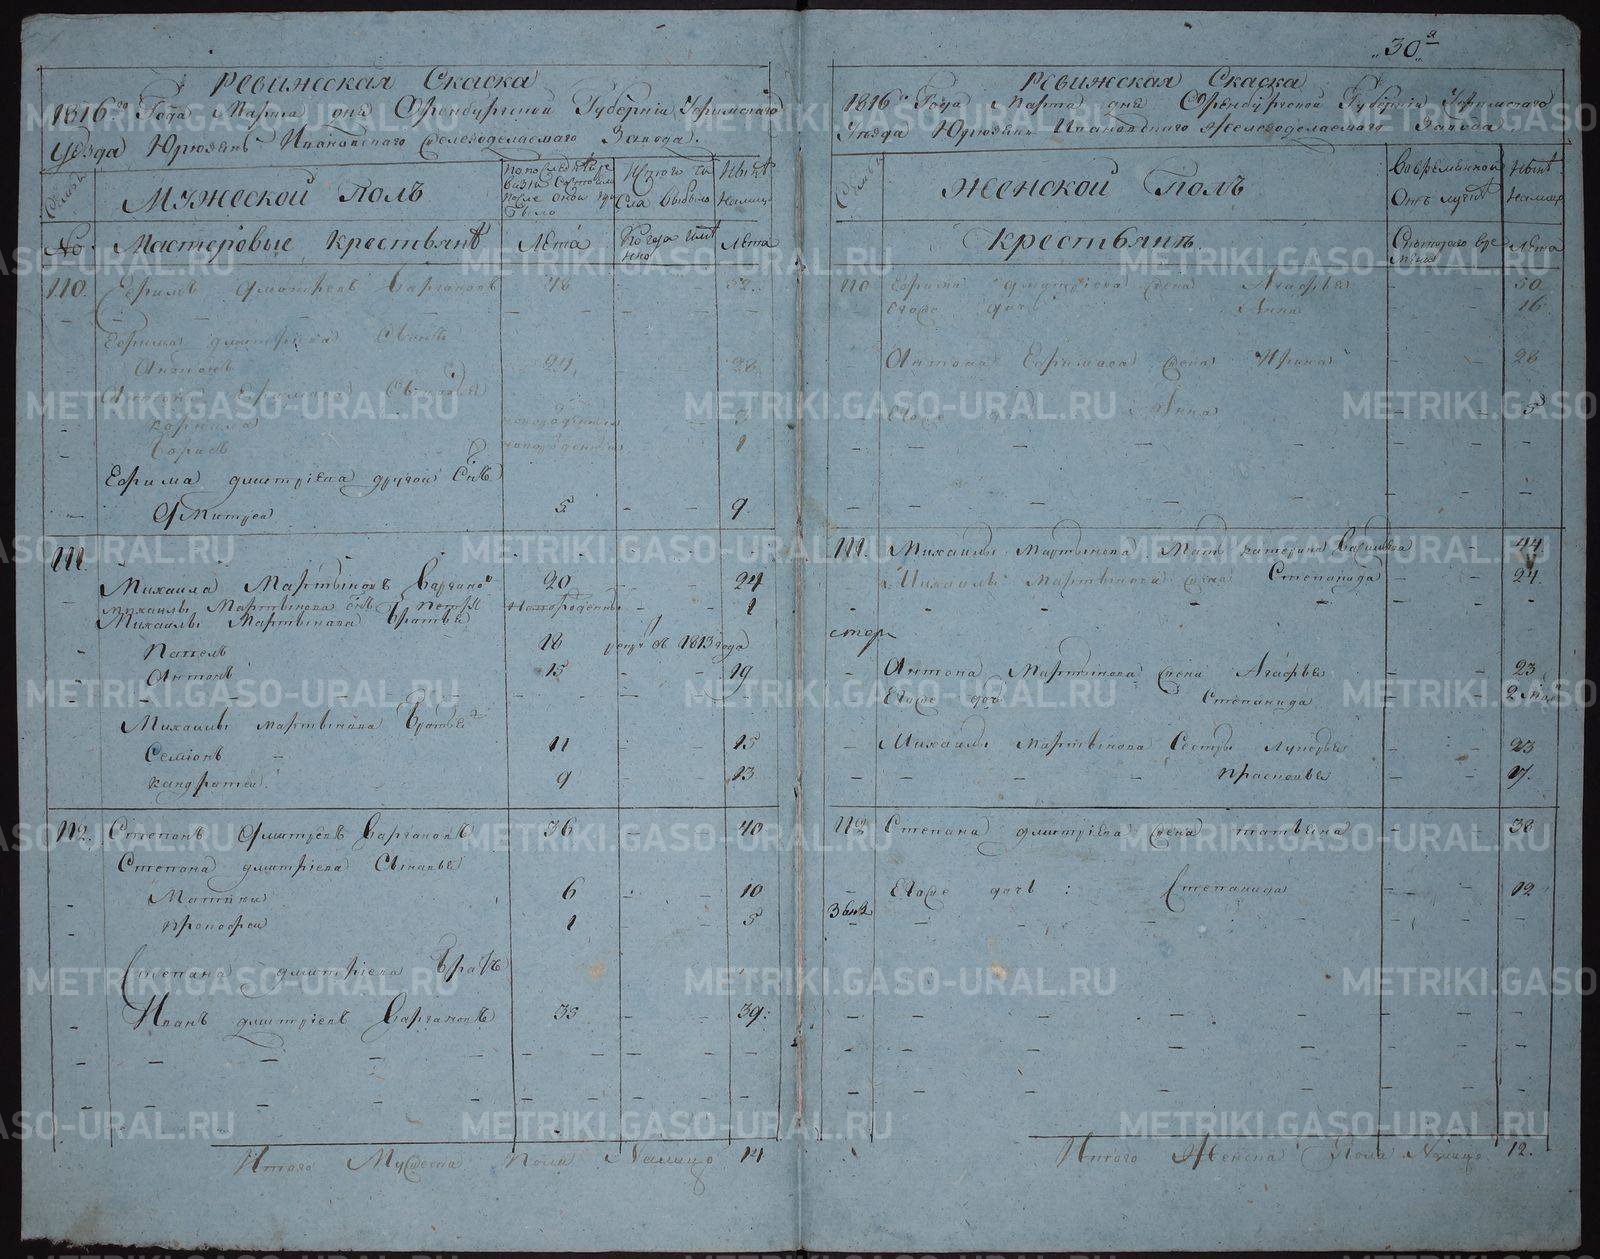 „30"я
Ревижская Скаска
1816го Года Марта дня Оренбургской Губерніи Уфимскаго
Уезда Юрюзень Ивановскаго железоделаемаго Завода.
Семьи
Мужеской Полъ
Нынѣ
Налицо
№
Мастеровые крестьянѣ
Лѣта
Когда имѣнно
Лѣта
110. Ефримъ Дмитревъ Варгановъ 48 - - 52.
Ефрима дмитріева Сынъ
Антонъ 24. 28.
Антона Ефримова Сыновья
Корнила новорожденъ 3
Борисъ новорожденъ 1
Ефрима дмитріева другой Сынъ
Дмитреи 5 - - 9
111.
Михаила Мартыновъ Варгановъ 20 24
Михаилы Мартынова сынъ Петръ Новорожденъ - - 1
Михаилы Мартынова Братья
Павелъ 18 рекр. въ 1813 года
Антонъ 15 19
Михаилы мартынова Братья
Семіонъ - 11 - - 15
Кандратеи 9 - - 13
112. Степанъ Дмитревъ Варгановъ 36 - - 40
Степана дмитріева Сыновья
Матвеи 6 - - 10
Прокофеи 1 - - 5
Степана дмитріева Братъ
Иванъ дмитріевъ Варгановъ 35 - - 39.
Итого Мужеска Пола Налицо 14
Ревижская Скаска
1816го Года Марта дня Оренбургской Губерніи Уфимскаго
Уезда Юрюзень Ивановскаго железоделаемаго Завода
Семьи
Женской Полъ
Вовременной
Отлучкѣ
Нынѣ
Налицо
Крестьянъ
Скотораго времени
Лѣта
110 Ефрима дмитріева жена Агафья - - 50
Егоже дочь Анна 16
Антона Ефримова жена Ирина - - 26
Егоже дочь : Анна - - 5
111. Михаилы Мартынова Мать катерина Васильева - 44
Михаилы Мартынова жена Степанида - - 24.
Антона Мартынова жена Агафья - - 23
Егоже дочь Степанида - - 2
Михаилы Мартынова Сестры Лукерья 23
- - Прасковья - - 17.
112 Степана дмитріева жена татьяна - - 38
Егоже дочь : Степанида - - 12
Итого Женска Пола Налицо 12.
METRIKI.GASO-URAL.RU